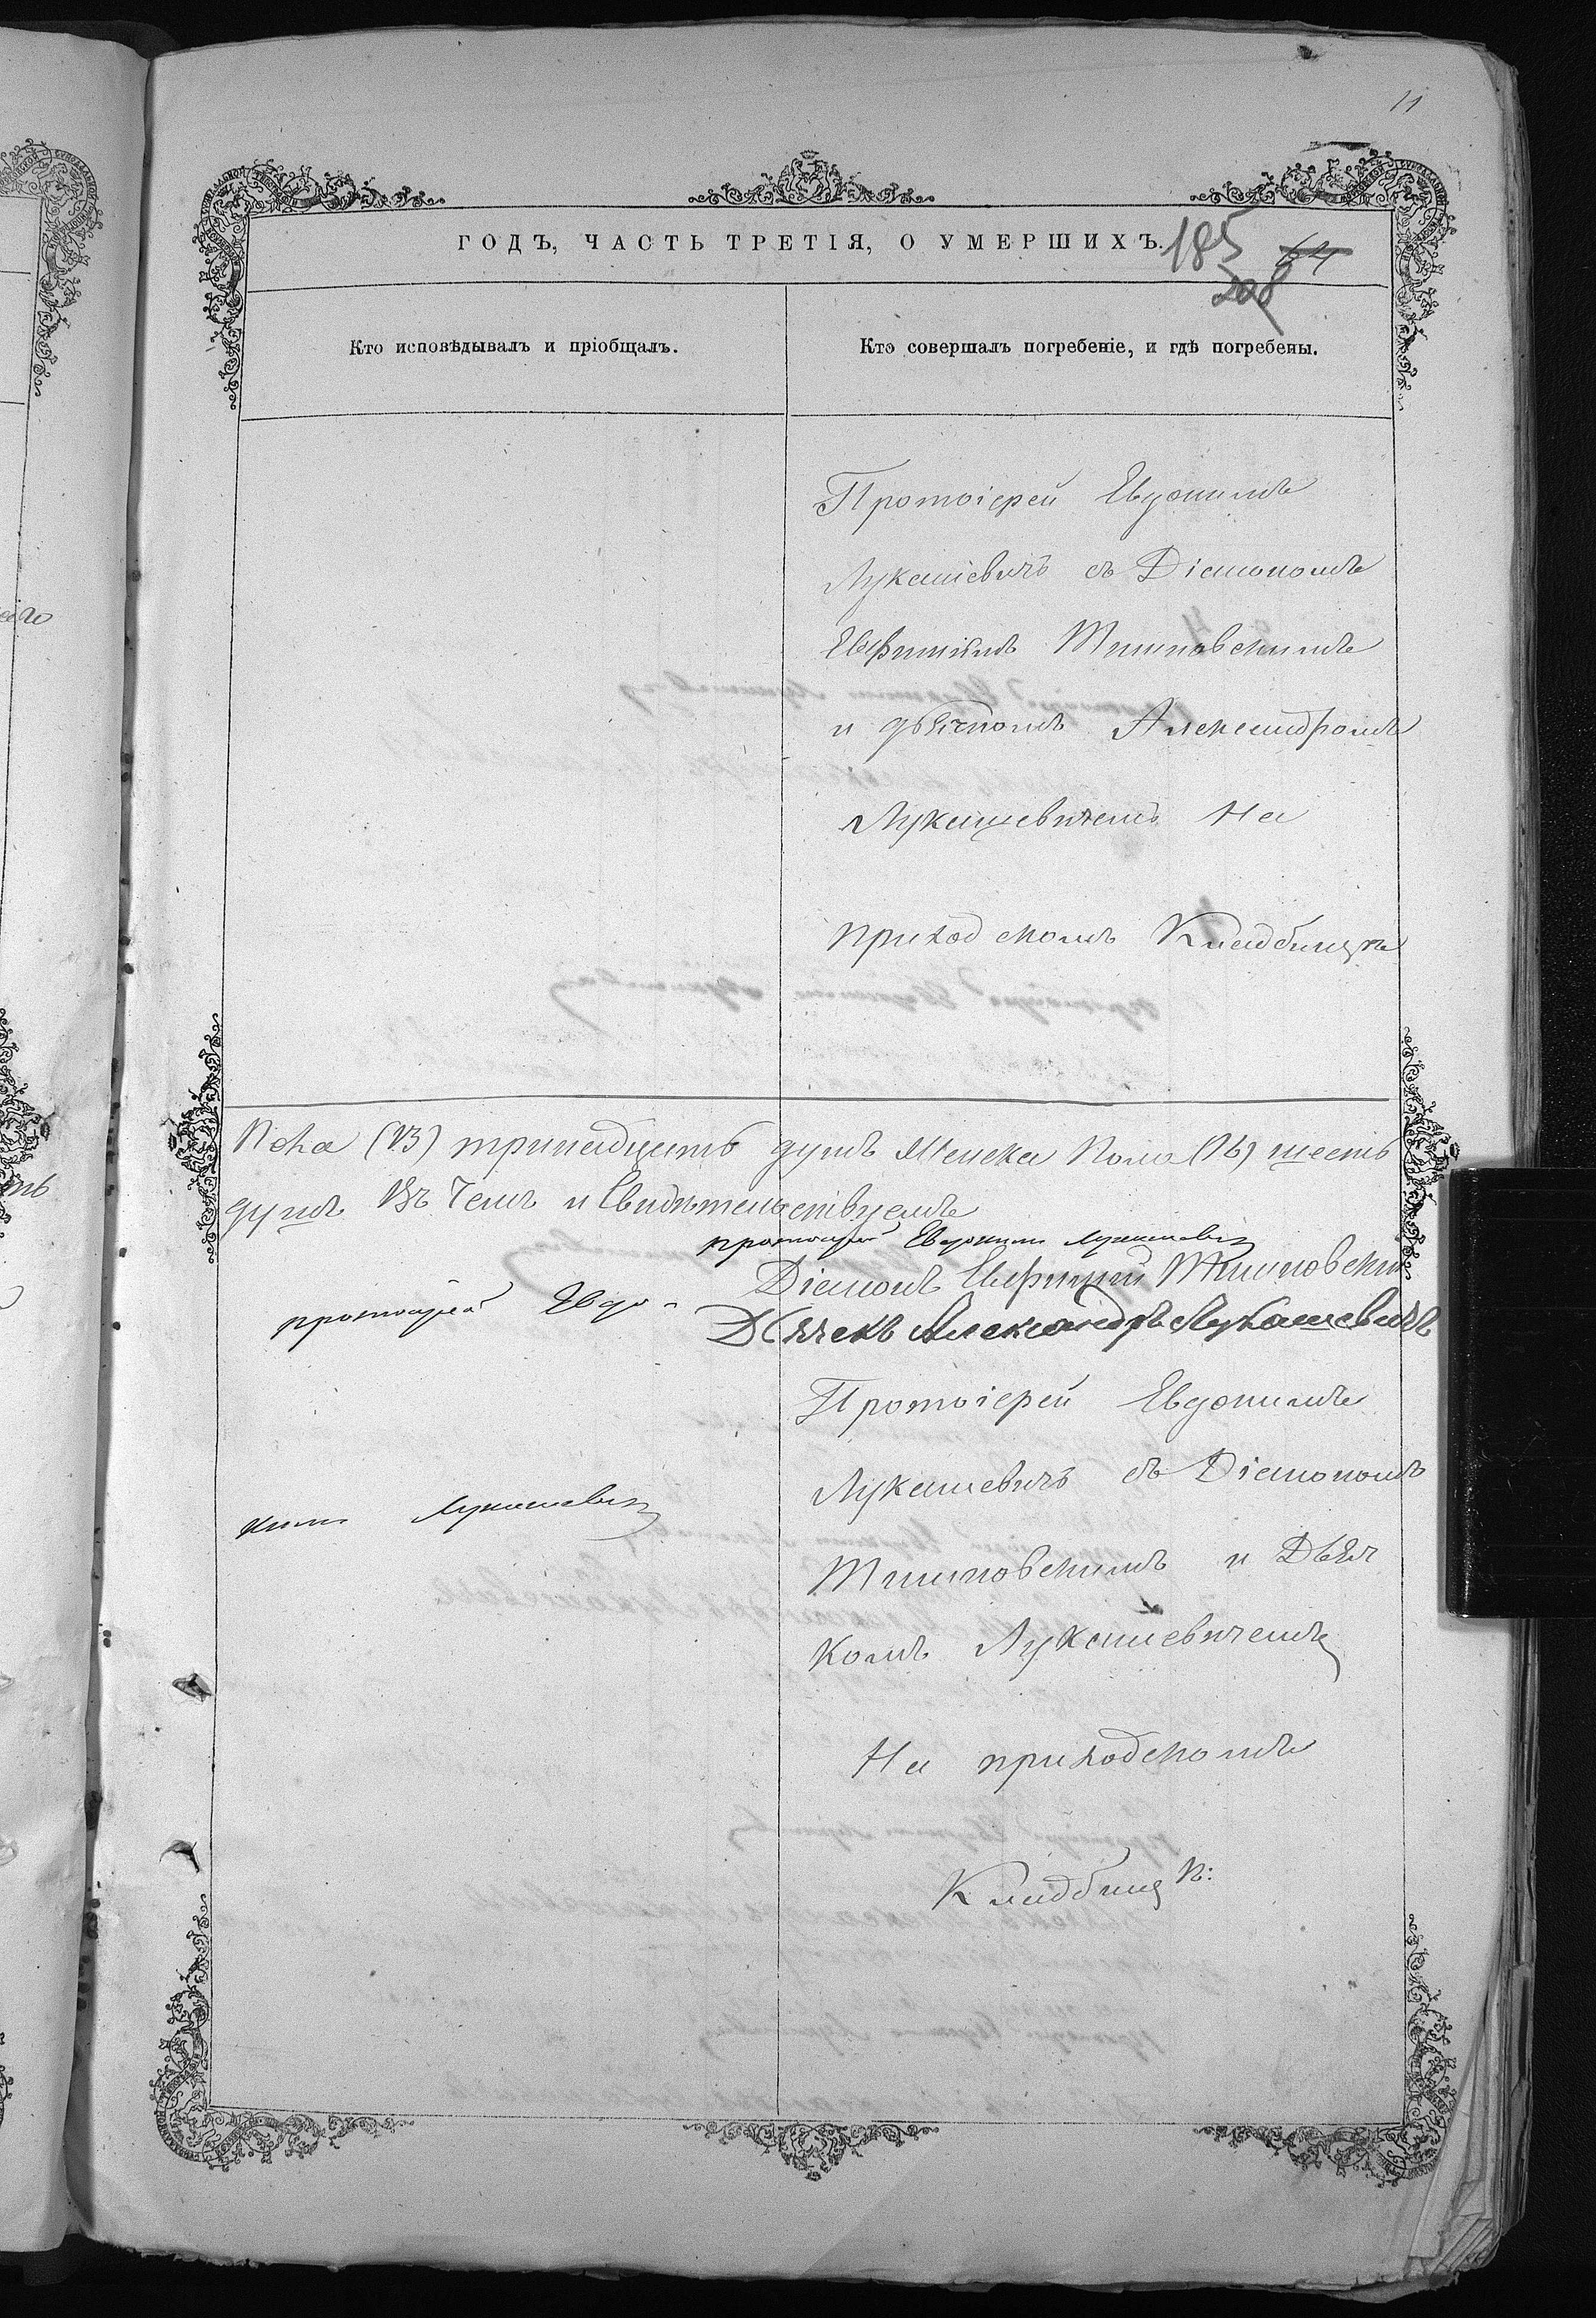 11
ГОДЪ, ЧАСТЬ ТРЕТІЯ, О УМЕРШИХЪ.
185 64
208
Кто исповѣдывалъ и пріобщалъ.
Кто совершалъ погребеніе, и гдѣ погребены.
Протоіерей Евдокимъ
Лукашевичъ съ Діакономъ
Евфиміимъ Тишковскимъ
и дьячкомъ Александромъ
Лукашевичемъ На
приходскомъ Кладбищѣ
Пола (13) тринадцать душъ Женска Пола (16) шесть
душъ Въ Чемъ и Свидѣтельствуемъ
протоіерей Евдокимъ Лукашевичъ
Діаконъ Евфимій Тишковскій
Дьячекъ Александръ Лукашевичъ
протоіерей Евдо-
кимъ Лукашевичъ
Протоіерей Евдокимъ
Лукашевичъ съ Діакономъ
Тишковскимъ и Дьяч
комъ Лукашевичемъ
На приходскомъ
Кладбищѣ